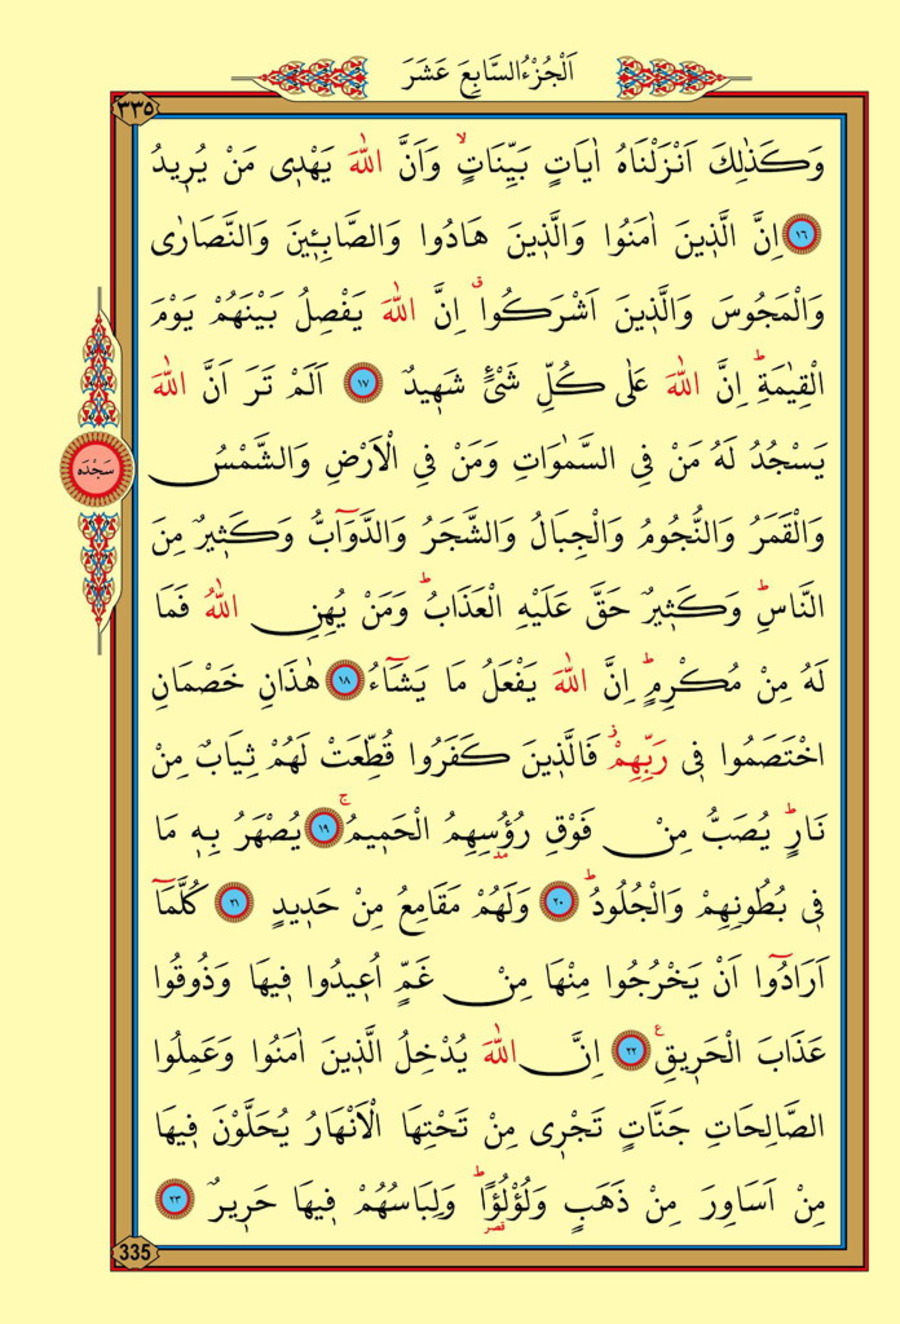 اَلْجُزْءُ السَّابِعَ عَشَرَ
٣٣٥
وَكَذٰلِكَ اَنْزَلْنَاهُ اٰيَاتٍ بَيِّنَاتٍۙ وَاَنَّ اللّٰهَ يَهْدٖى مَنْ يُرٖيدُ
١٦ اِنَّ الَّذٖينَ اٰمَنُوا وَالَّذٖينَ هَادُوا وَالصَّابِـٖٔينَ وَالنَّصَارٰى
وَالْمَجُوسَ وَالَّذٖينَ اَشْرَكُواۗ اِنَّ اللّٰهَ يَفْصِلُ بَيْنَهُمْ يَوْمَ
الْقِيٰمَةِؕ اِنَّ اللّٰهَ عَلٰى كُلِّ شَىْءٍ شَهٖيدٌ ١٧ اَلَمْ تَرَ اَنَّ اللّٰهَ
سَجْدَه
يَسْجُدُ لَهُ مَنْ فِى السَّمٰوَاتِ وَمَنْ فِى الْاَرْضِ وَالشَّمْسُ
وَالْقَمَرُ وَالنُّجُومُ وَالْجِبَالُ وَالشَّجَرُ وَالدَّوَٓابُّ وَكَثٖيرٌ مِنَ
النَّاسِؕ وَكَثٖيرٌ حَقَّ عَلَيْهِ الْعَذَابُؕ وَمَنْ يُهِنِ اللّٰهُ فَمَا
لَهُ مِنْ مُكْرِمٍؕ اِنَّ اللّٰهَ يَفْعَلُ مَا يَشَٓاءُ ١٨ هٰذَانِ خَصْمَانِ
اخْتَصَمُوا فٖى رَبِّهِمْؗ فَالَّذٖينَ كَفَرُوا قُطِّعَتْ لَهُمْ ثِيَابٌ مِنْ
نَارٍؕ يُصَبُّ مِنْ فَوْقِ رُؤُسِهِمُ الْحَمٖيمُۚ ١٩ يُصْهَرُ بِهٖ مَا
فٖى بُطُونِهِمْ وَالْجُلُودُؕ ٢٠ وَلَهُمْ مَقَامِعُ مِنْ حَدٖيدٍ ٢١ كُلَّمَٓا
اَرَادُٓوا اَنْ يَخْرُجُوا مِنْهَا مِنْ غَمٍّ اُعٖيدُوا فٖيهَا وَذُوقُوا
عَذَابَ الْحَرٖيقِ ع ٢٢ اِنَّ اللّٰهَ يُدْخِلُ الَّذٖينَ اٰمَنُوا وَعَمِلُوا
الصَّالِحَاتِ جَنَّاتٍ تَجْرٖى مِنْ تَحْتِهَا الْاَنْهَارُ يُحَلَّوْنَ فٖيهَا
مِنْ اَسَاوِرَ مِنْ ذَهَبٍ وَلُؤْلُؤًاؕ وَلِبَاسُهُمْ فٖيهَا حَرٖيرٌ ٢٣
قصر
335